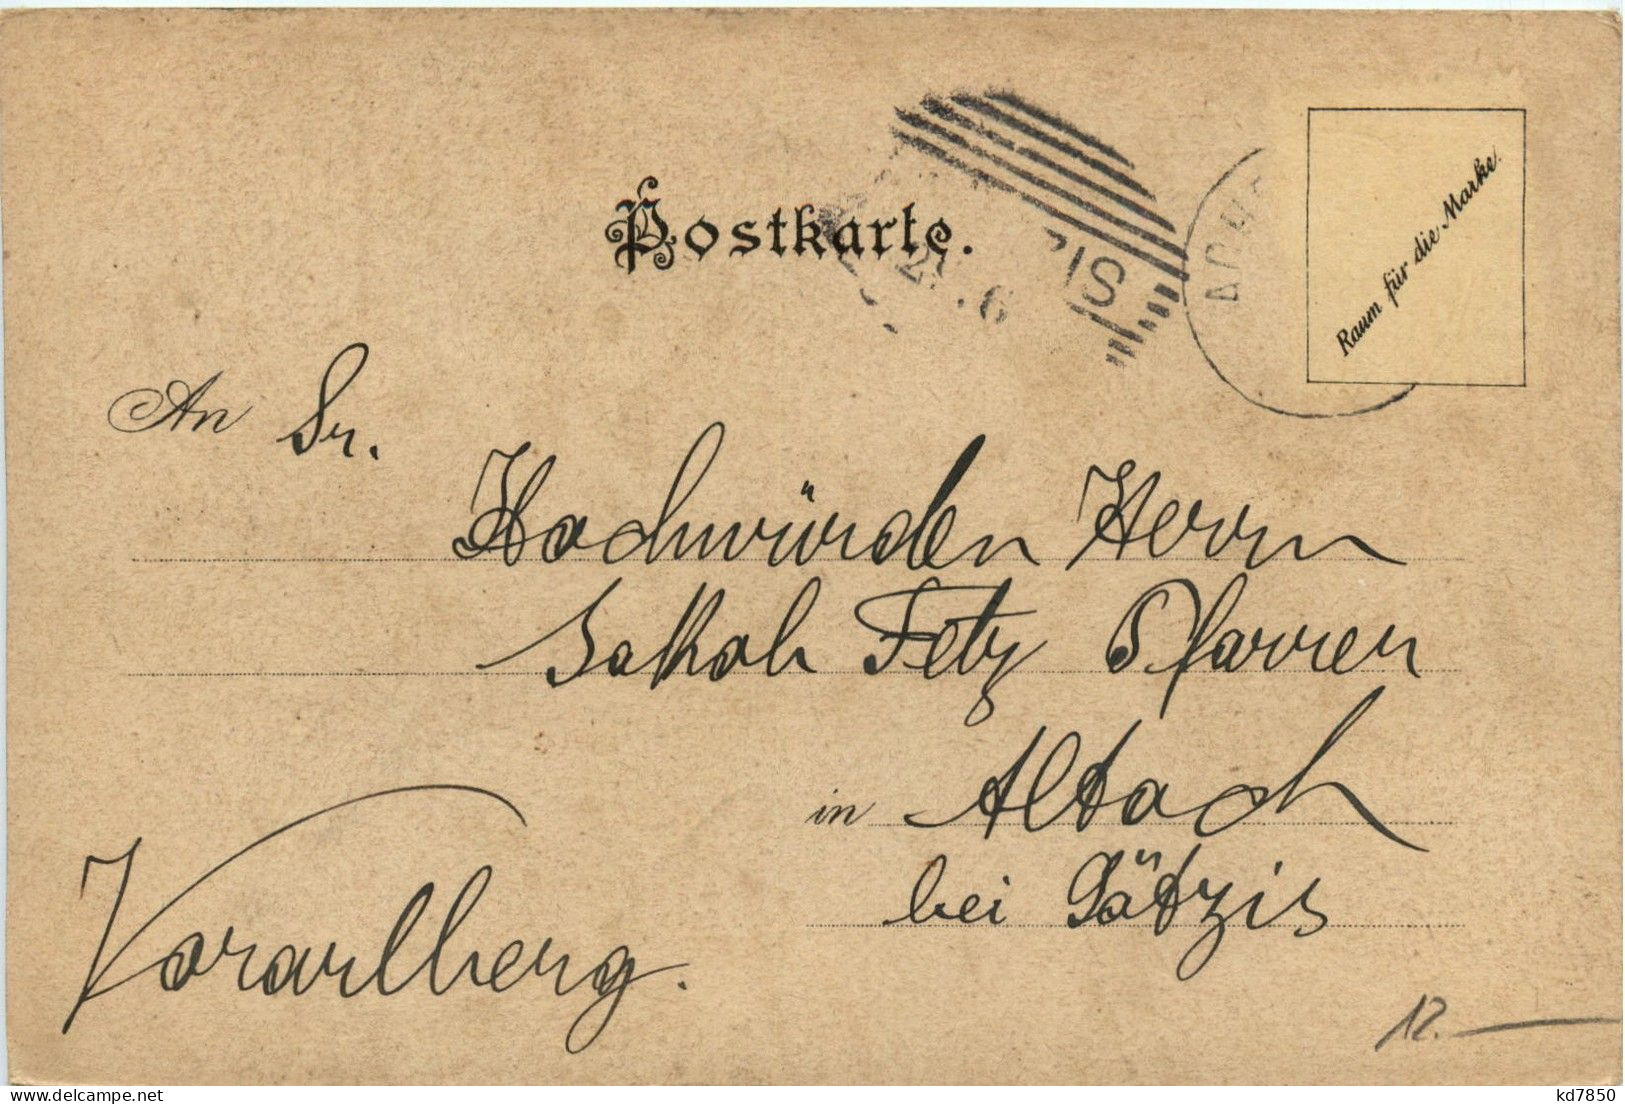 Postkarte.
Raum für die Marke.
An Sr.
Hochwürden Herrn
Jakob Fetz Pfarrer
in Altach
bei Götzis
Vorarlberg.
12.—
delcampe.net
kd7850